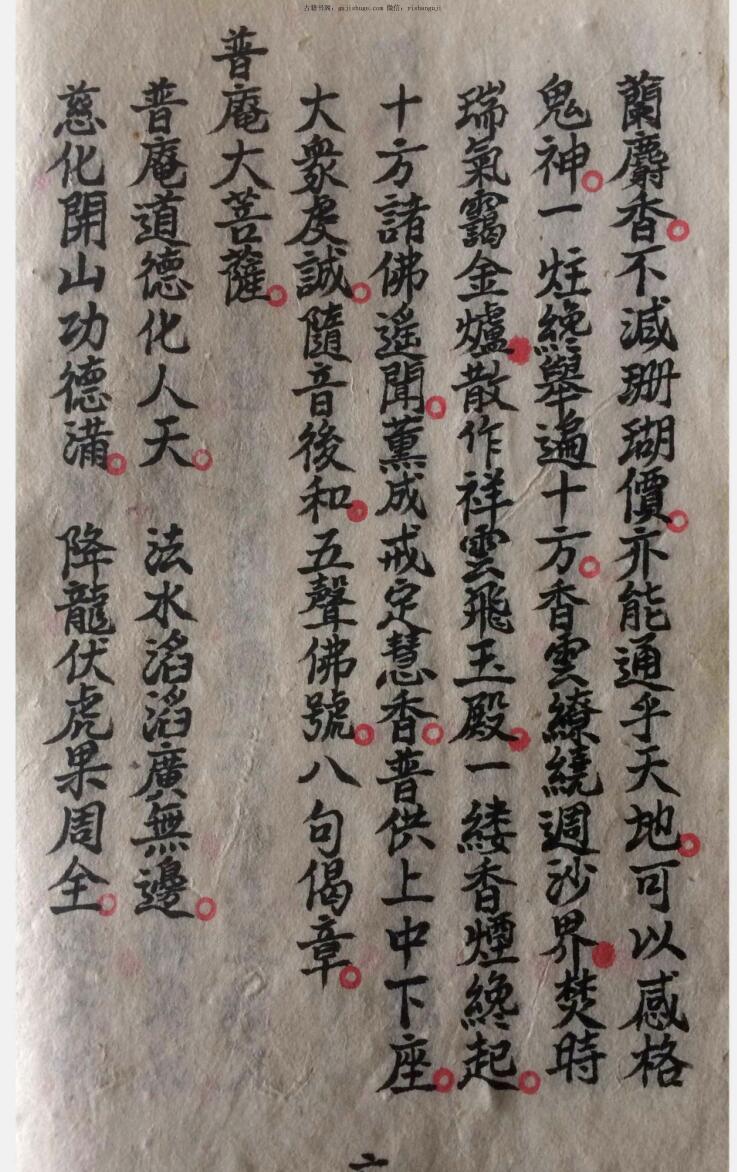 古籍书阁：gujishuge.com 微信：rishenguji
蘭麝香。不減珊瑚價。亦能通乎天地。可以感格
鬼神。一炷纔舉遍十方。香雲繚繞週沙界。焚時
瑞氣靄金爐。散作祥雲飛玉殿。一縷香煙纔起。
十方諸佛遥聞。薰成戒定慧香。普供上中下座。
大衆虔誠。隨音後和。五聲佛號。八句偈章。
普庵大菩薩。
普庵道德化人天。 法水滔滔廣無邊。
慈化開山功德滿。 降龍伏虎果周全。
二